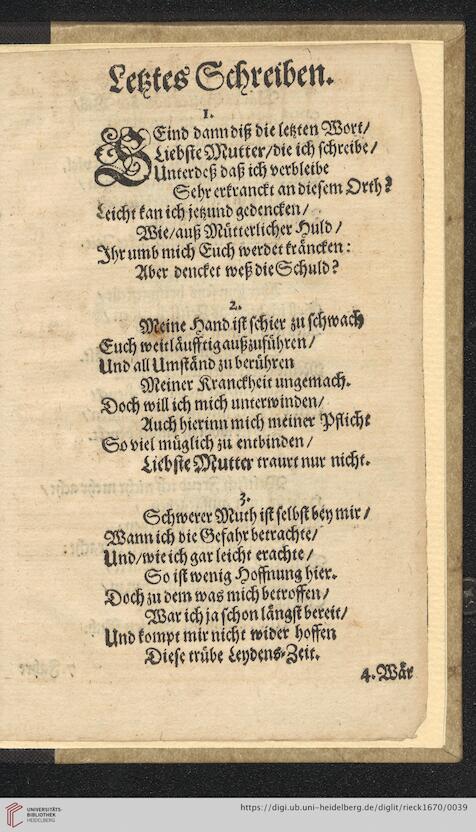 Letztes Schreiben.
1.
SEind dann diß die letzten Wort/
Liebste Mutter/die ich schreibe/
Unterdeß daß ich verbleibe
Sehr erkranckt an diesem Orth?
Leicht kan ich jetzund gedencken/
Wie/auß Mütterlicher Huld/
Ihr umb mich Euch werdet kräncken:
Aber dencket weß die Schuld?
2.
Meine Hand ist schier zu schwach
Euch weitläufftig außzuführen/
Und all Umständ zu berühren
Meiner Kranckheit ungemach.
Doch will ich mich unterwinden/
Auch hierinn mich meiner Pflicht
So viel müglich zu entbinden/
Liebste Mutter traurt nur nicht.
3.
Schwerer Muth ist selbst bey mir/
Wann ich die Gefahr betrachte/
Und/wie ich gar leicht erachte/
So ist wenig Hoffnung hier.
Doch zu dem was mich betroffen/
War ich ja schon längst bereit/
Und kompt mir nicht wider hoffen
Diese trübe Leydens-Zeit.
4. Wär
UNIVERSITÄTS-
BIBLIOTHEK
HEIDELBERG
https://digi.ub.uni-heidelberg.de/diglit/rieck1670/0039